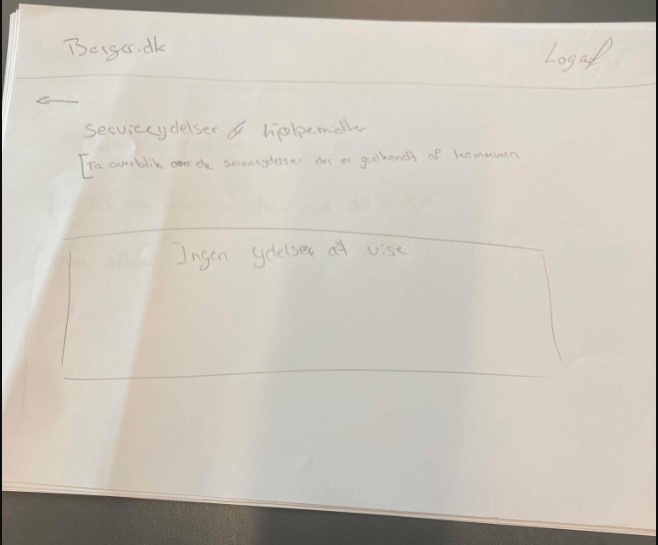 Borger.dk
Log af
Serviceydelser & hjælpemidler
[Få overblik over de serviceydelser der er godkendt af kommunen
Ingen ydelser at vise